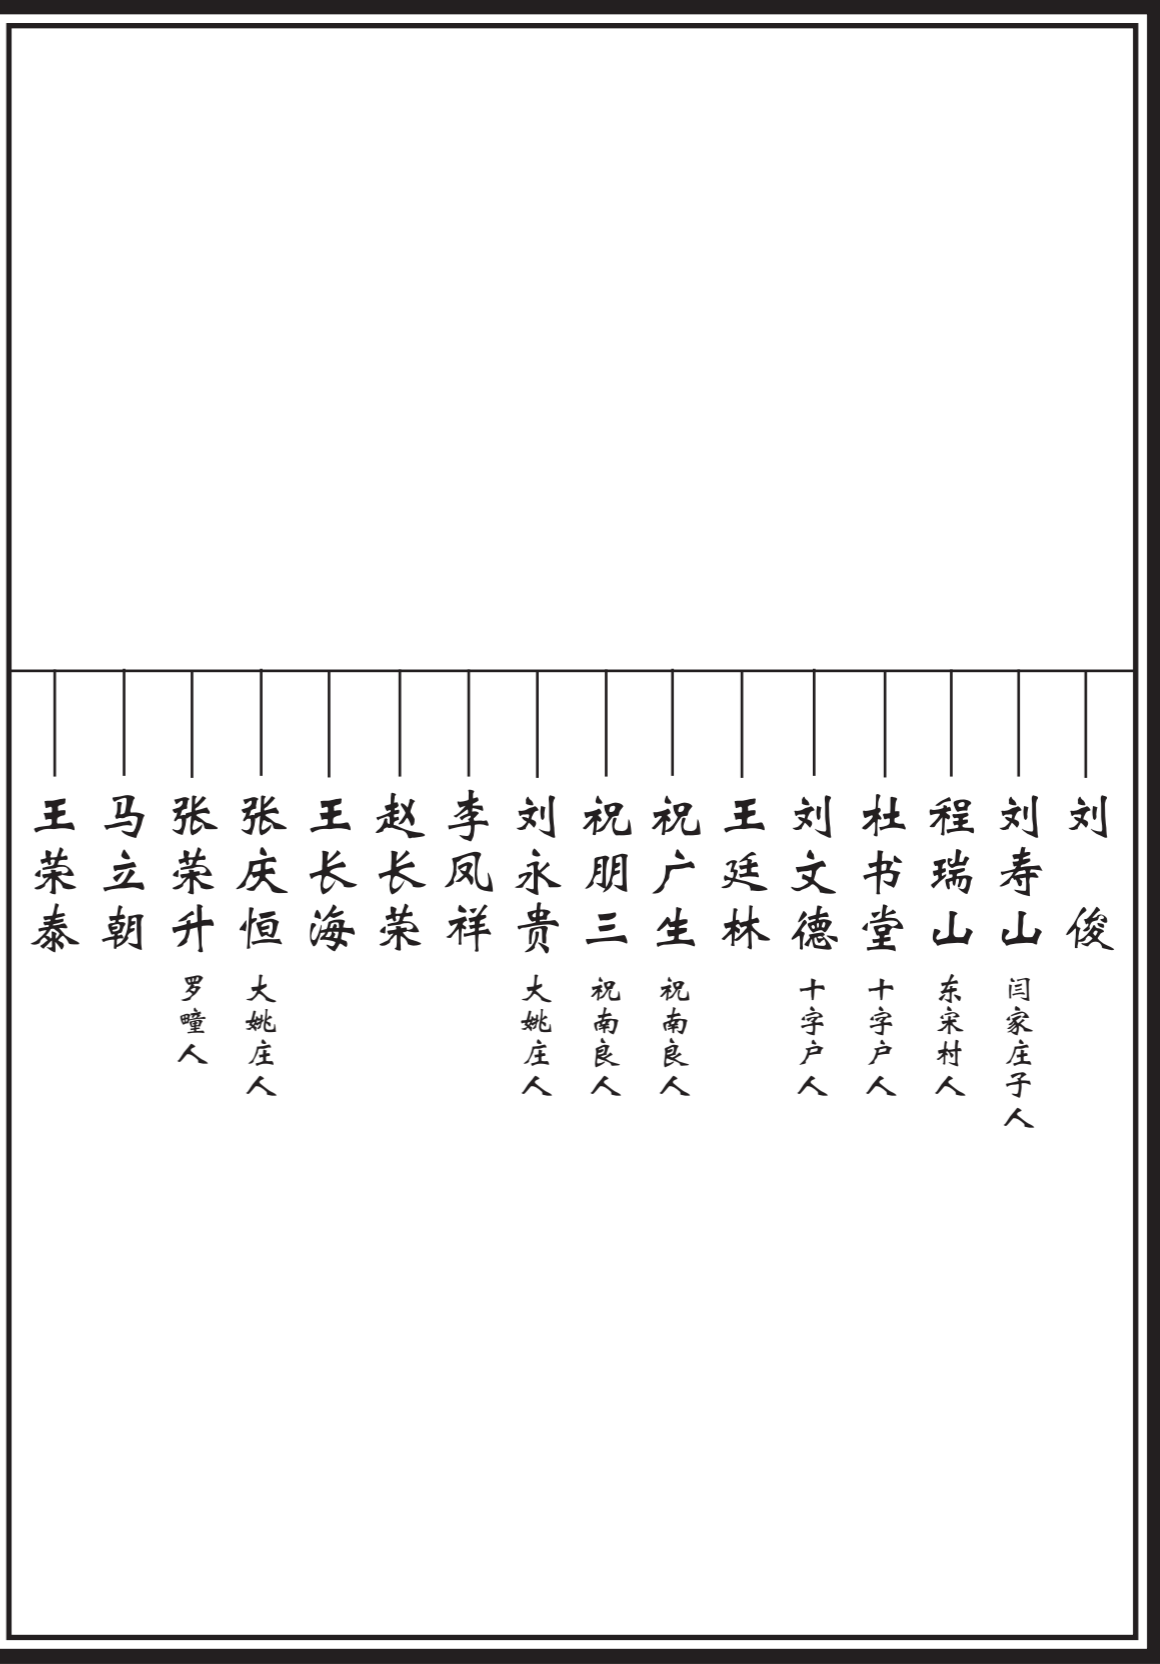 刘俊
刘寿山 闫家庄子人
程瑞山 东宋村人
杜书堂 十字户人
刘文德 十字户人
王廷林
祝广生 祝南良人
祝朋三 祝南良人
刘永贵 大姚庄人
李凤祥
赵长荣
王长海
张庆恒 大姚庄人
张荣升 罗疃人
马立朝
王荣泰